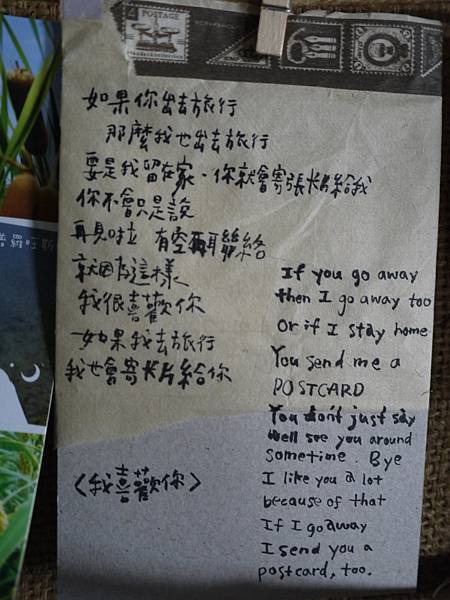 POSTAGE
如果你出去旅行
那麼我也出去旅行
要是我留在家，你就會寄張卡片給我
你不會只是說
再見啦 有空再聯絡
就因為這樣
我很喜歡你
如果我去旅行
我也會寄卡片給你
<我喜歡你>
If you go away
then I go away too
Or if I stay home
You send me a
POSTCARD
You don't just say
Well see you around
sometime. Bye
I like you a lot
because of that
If I go away
I send you a
postcard, too.